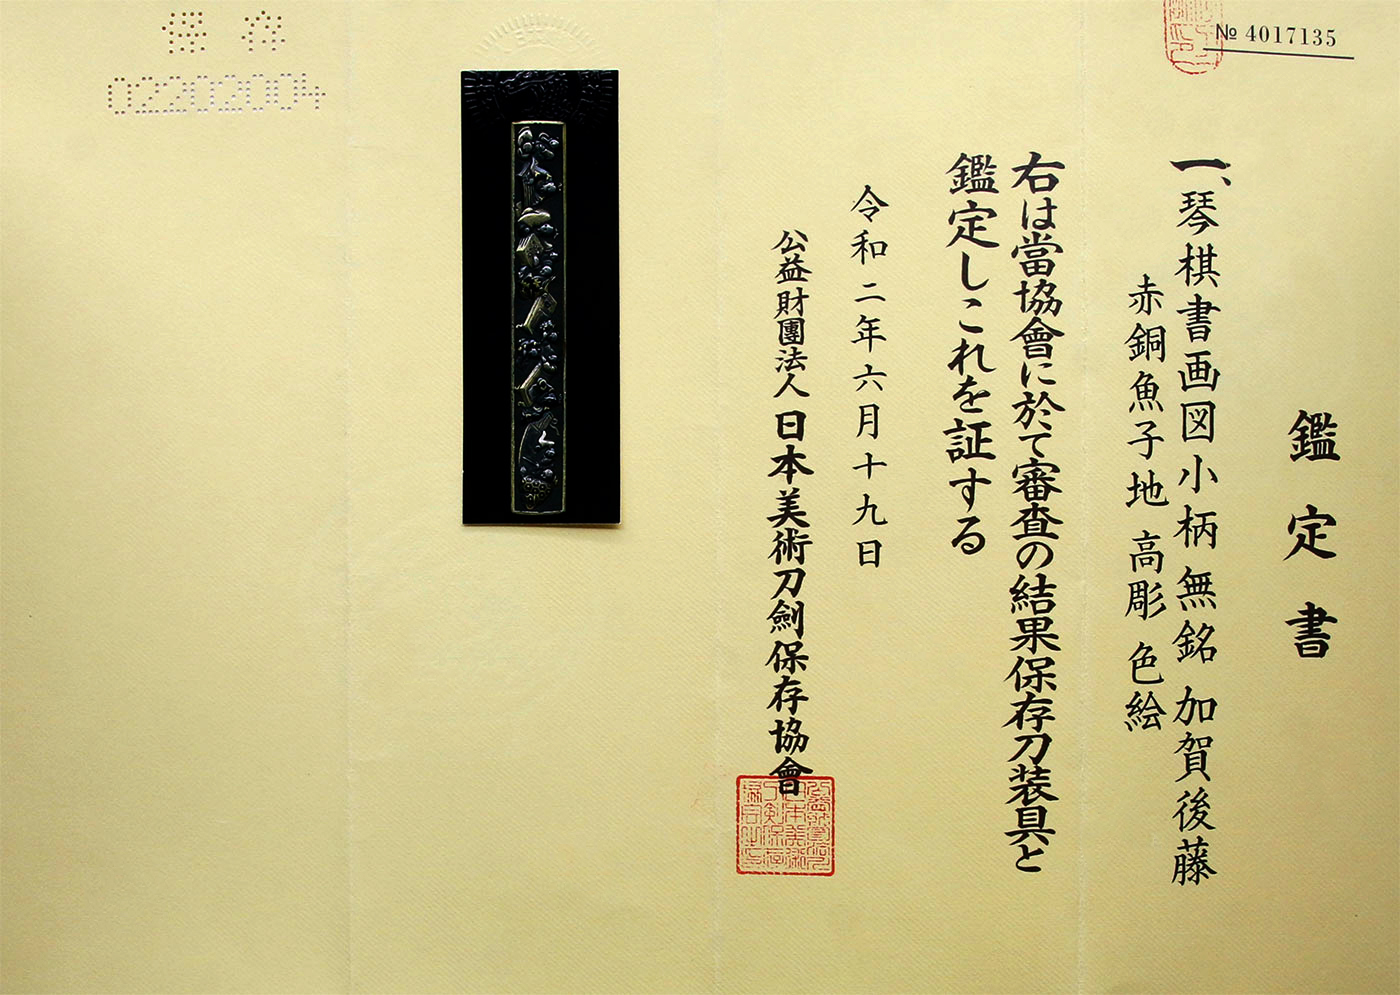 № 4017135
鑑定書
一、琴棋書画図小柄 無銘 加賀後藤
赤銅魚子地 高彫 色絵
右は當協會に於て審査の結果保存刀装具と
鑑定しこれを証する
令和二年六月十九日
公益財團法人 日本美術刀劍保存協會
保存
02202004